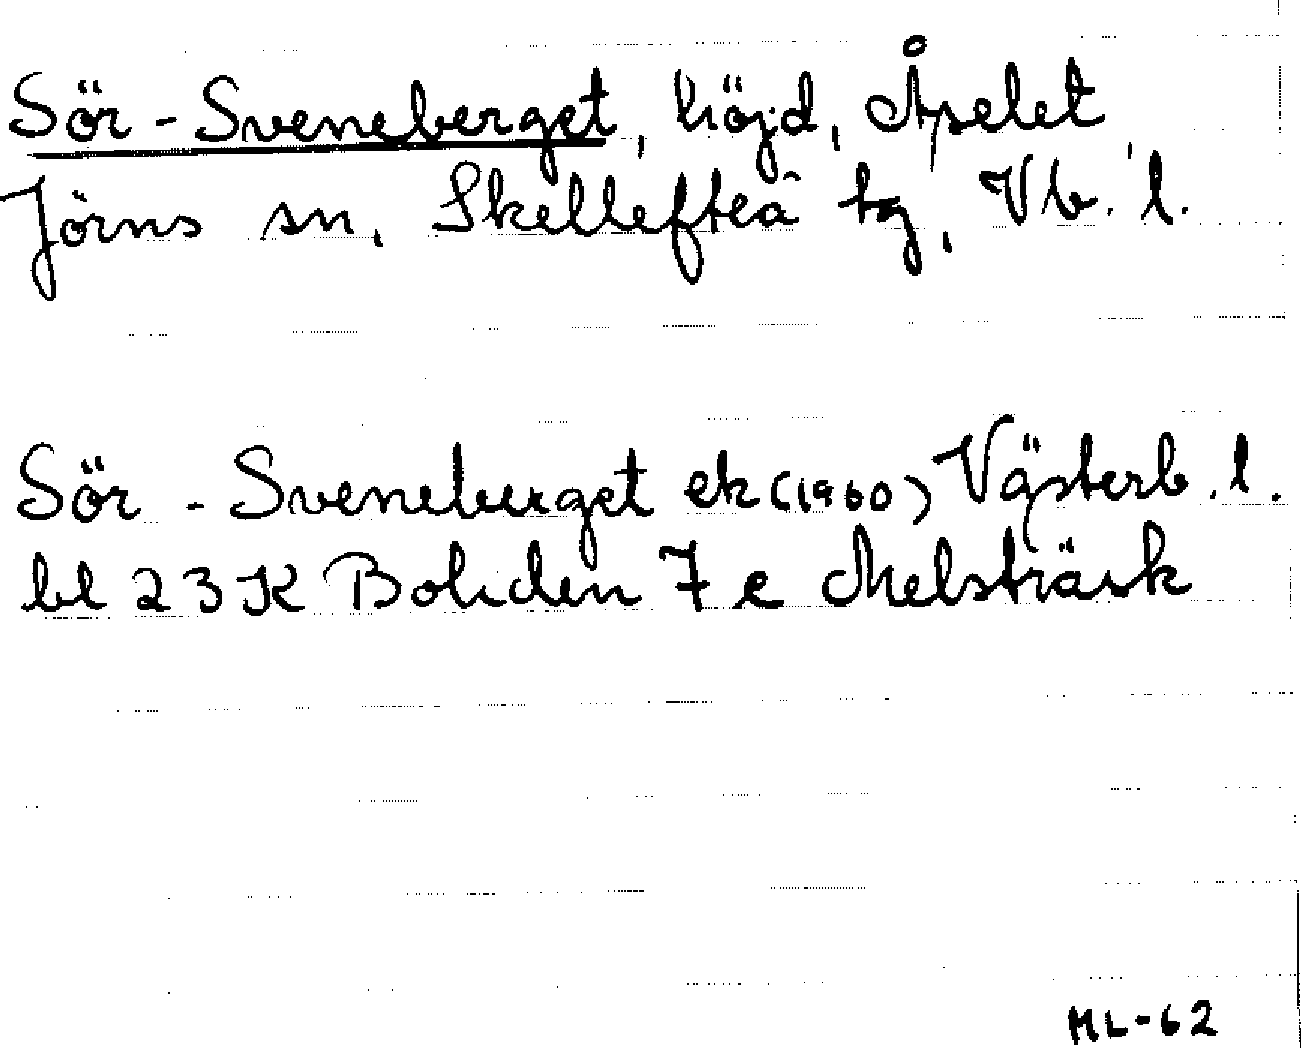 Sör-Sveneberget, höjd, Åselet
Jörns sn, Skellefteå tg, Vb. l.
Sör-Sveneberget ek (1960) Västerb. l.
bl 23K Boliden 7 e Melsträsk
ML-62